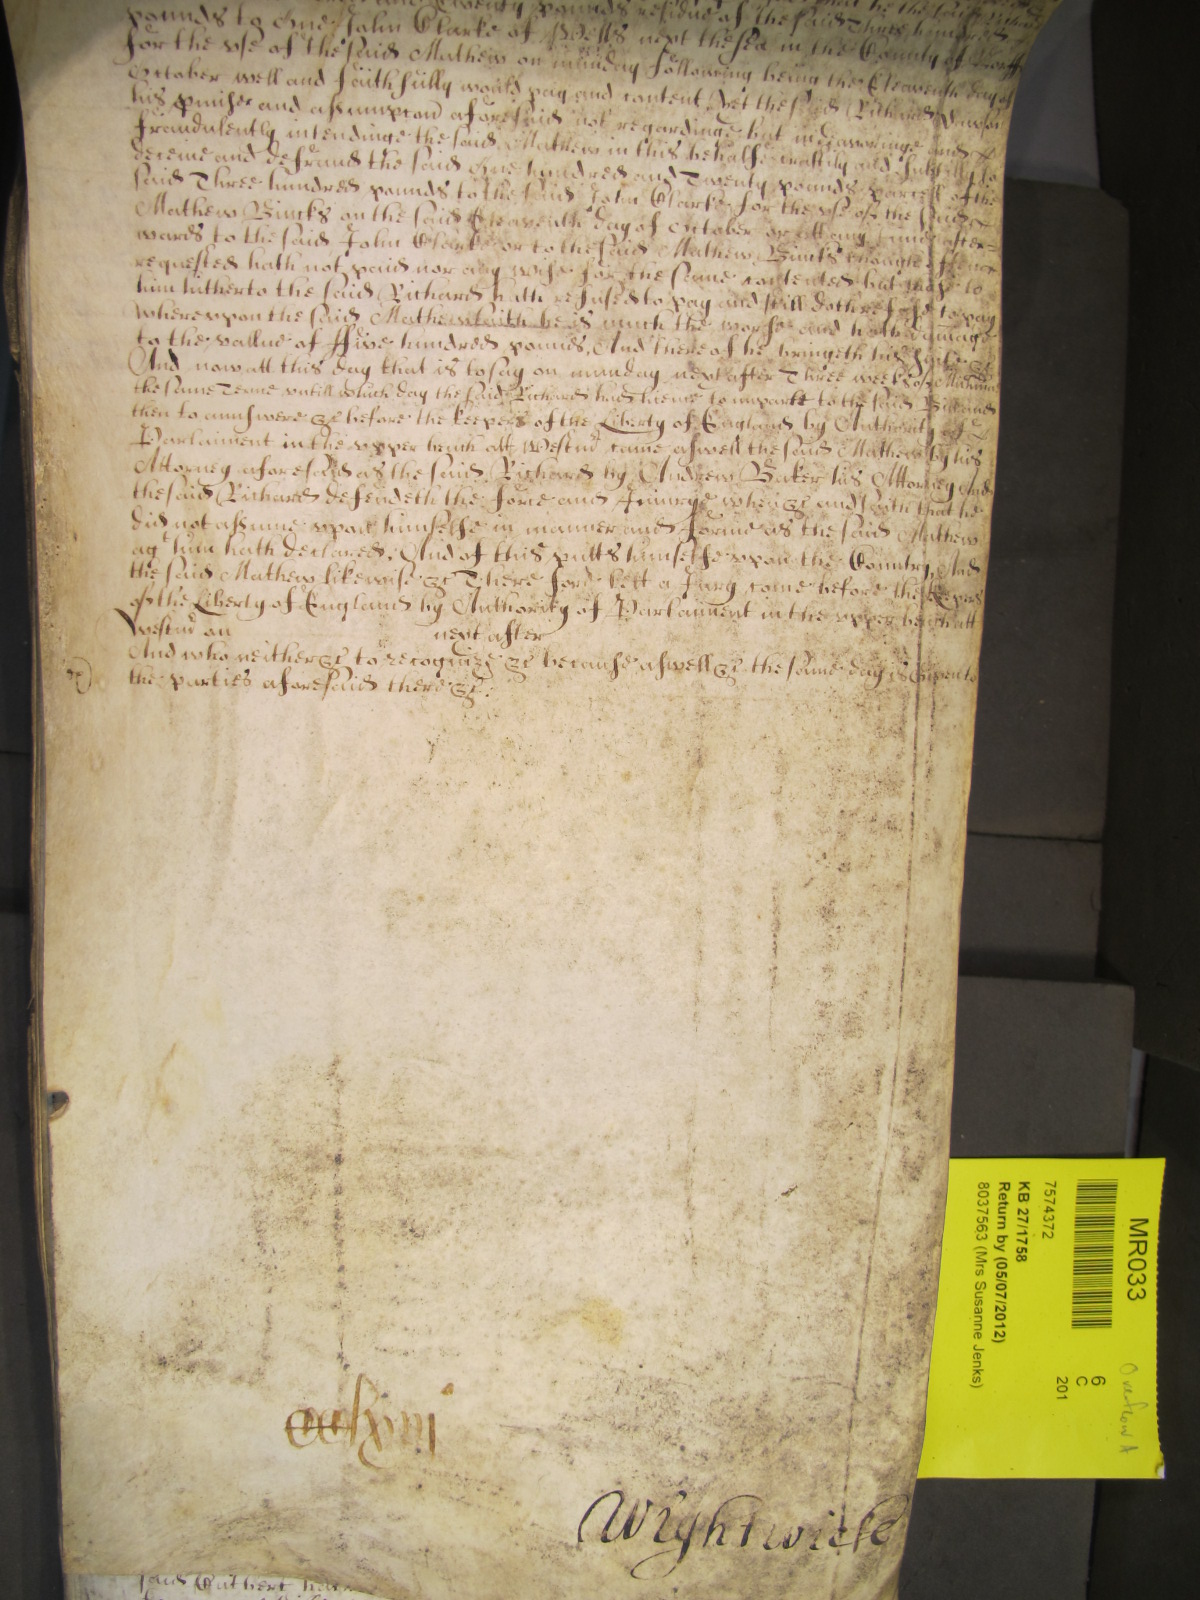 and Twenty pounds residue of the said Three hundred
pounds to one John Clarke of Wells next the sea in the County of Norff
for the vse of the said Mathew on munday following being the Eleaventh day of
October well and faithfully would pay and content Yet the said Richard
his pmise and assumpcon aforesaid not regardinge but indeavoringe and
fraudulently intendinge the said Mathew in this behalfe craftily and subtilly to
deceive and defraud the said One hundred and Twenty pounds parcell of the
said Three hundred pounds to the said John Clarke for the vse of the said
Mathew Bincks on the said Eleaventh day of October or att any time after=
wards to the said John Clarke or to the said Mathew Bincks though often
requested hath not paid nor any wise for the same contented but the same to
him hitherto the said Richard hath refused to pay and still doth refuse to pay
wherevpon the said Mathew saith he is much the worse and hath damage
to the vallue of ffive hundred pounds, And thereof he bringeth his suite &c
And now att this day that is to say on munday next after Three weekes of
the same Terme vntill which day the said Richard had licence to imparle to the said Bill and
then to answere &c before the keepers of the Liberty of England by Authority of
Parliament in the vpper bench att Westmr came aswell the said Mathew by his
Attorney aforesaid as the said Richard by Andrew Baker his Attorney And
the said Richard defendeth the force and Iniurye when &c and saith that he
did not assume vpon himselfe in manner and forme as the said Mathew
agt him hath declared, And of this putts himselfe vpon the Country, And
the said Mathew likewise &c Therefore lett a Jury come before the keepers
of the Liberty of England by Authority of Parliament in the vpper bench att
Westmr on next after
And who neither &c to recognize &c because aswell &c the same day is Given to
the parties aforesaid there &c.
Wightwicke
said Cuthbert
MR033
7574372
KB 27/1758
Return by (05/07/2012)
8037563 (Mrs Susanne Jenks)
6
C
201
Overflow A